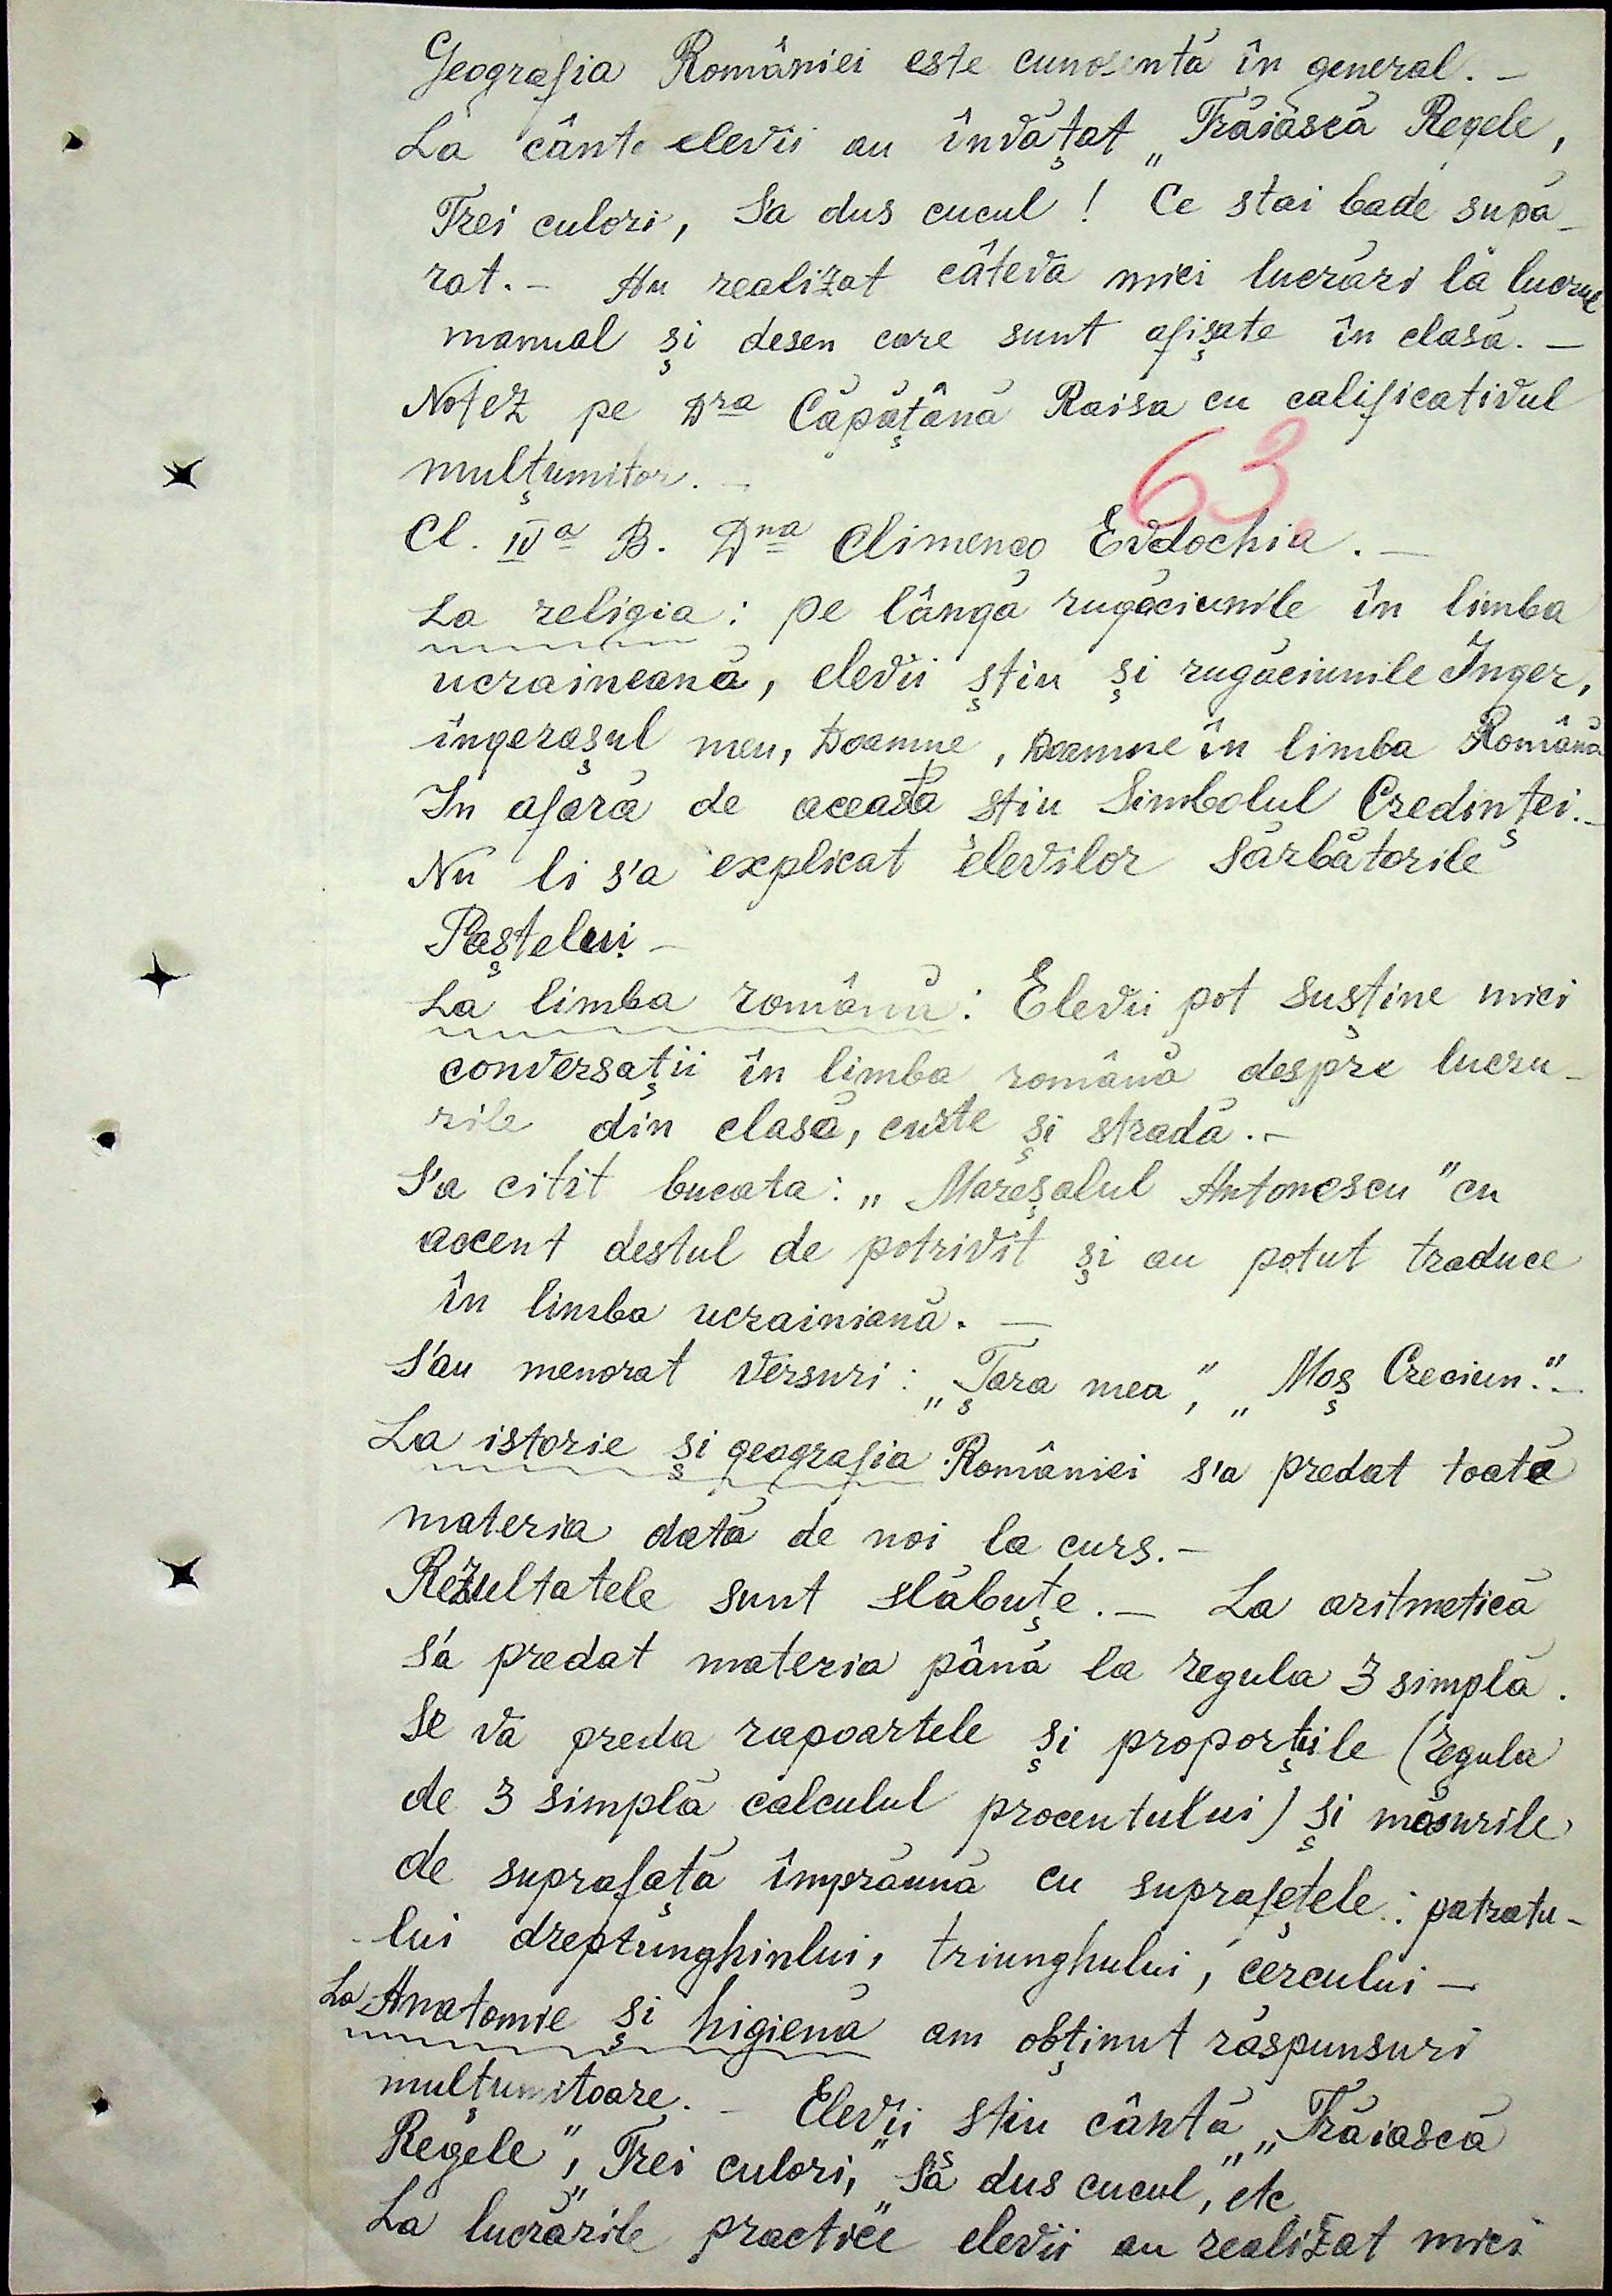 Geografia României este cunoscută în general. –
La cânt elevii au învățat „Trăiască Regele,
Trei culori, Sa dus cucul! Ce stai bade supă-
rat. – Au realizat câteva mici lucrări la lucrul
manual și desen care sunt afișate în clasă. –
Notez pe Dra Căpățână Raisa cu calificativul
mulțumitor. –
63.
Cl. IVa B. Dna Climenco Evdochia. –
La religia: pe lângă rugăciunile în limba
ucraineană, elevii știu și rugăciunile Înger,
îngerașul meu, Doamne, Doamne în limba Română
In afară de aceasta știu Simbolul Credinței. –
Nu li s'a explicat elevilor Sărbătorile
Paștelui –
La limba română: Elevii pot susține mici
conversații în limba română despre lucru-
rile din clasă, curte și stradă. –
S'a citit bucata: „Mareșalul Antonescu" cu
accent destul de potrivit și au potut traduce
în limba ucrainiană. –
S'au menorat versuri: „Țara mea", „Moș Creciun." –
La istorie și geografia României s'a predat toată
materia dată de noi la curs. –
Rezultatele sunt slăbuțe. – La aritmetică
s'a predat materia până la regula 3 simplă.
Se va preda rapoartele și proporțiile (regula
de 3 simplă calculul procentului) și măsurile
de suprafață împrăună cu suprafețele: patratu-
lui dreptunghiului, triunghului, cercului –
La Anatomie și higienă am obținut răspunsuri
mulțumitoare. – Elevii știu cântă „Trăiască
Regele", „Trei culori," Să dus cucul", etc
La lucrările practice elevii au realizat mici